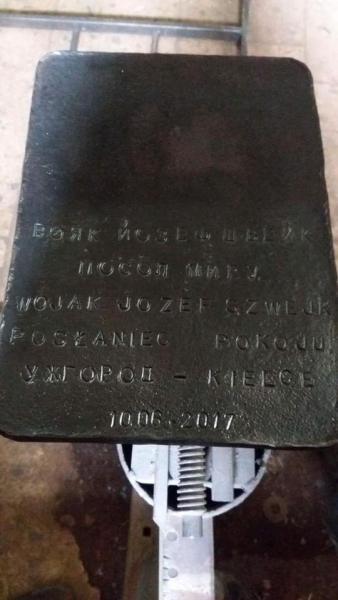 ВОЯК ЙОЗЕФ ШВЕЙК
ПОСОЛ МИРУ
WOJAK JOZEF SZWEJK
POSŁANIEC POKOJU
УЖГОРОД - KIELCE
10.06.2017